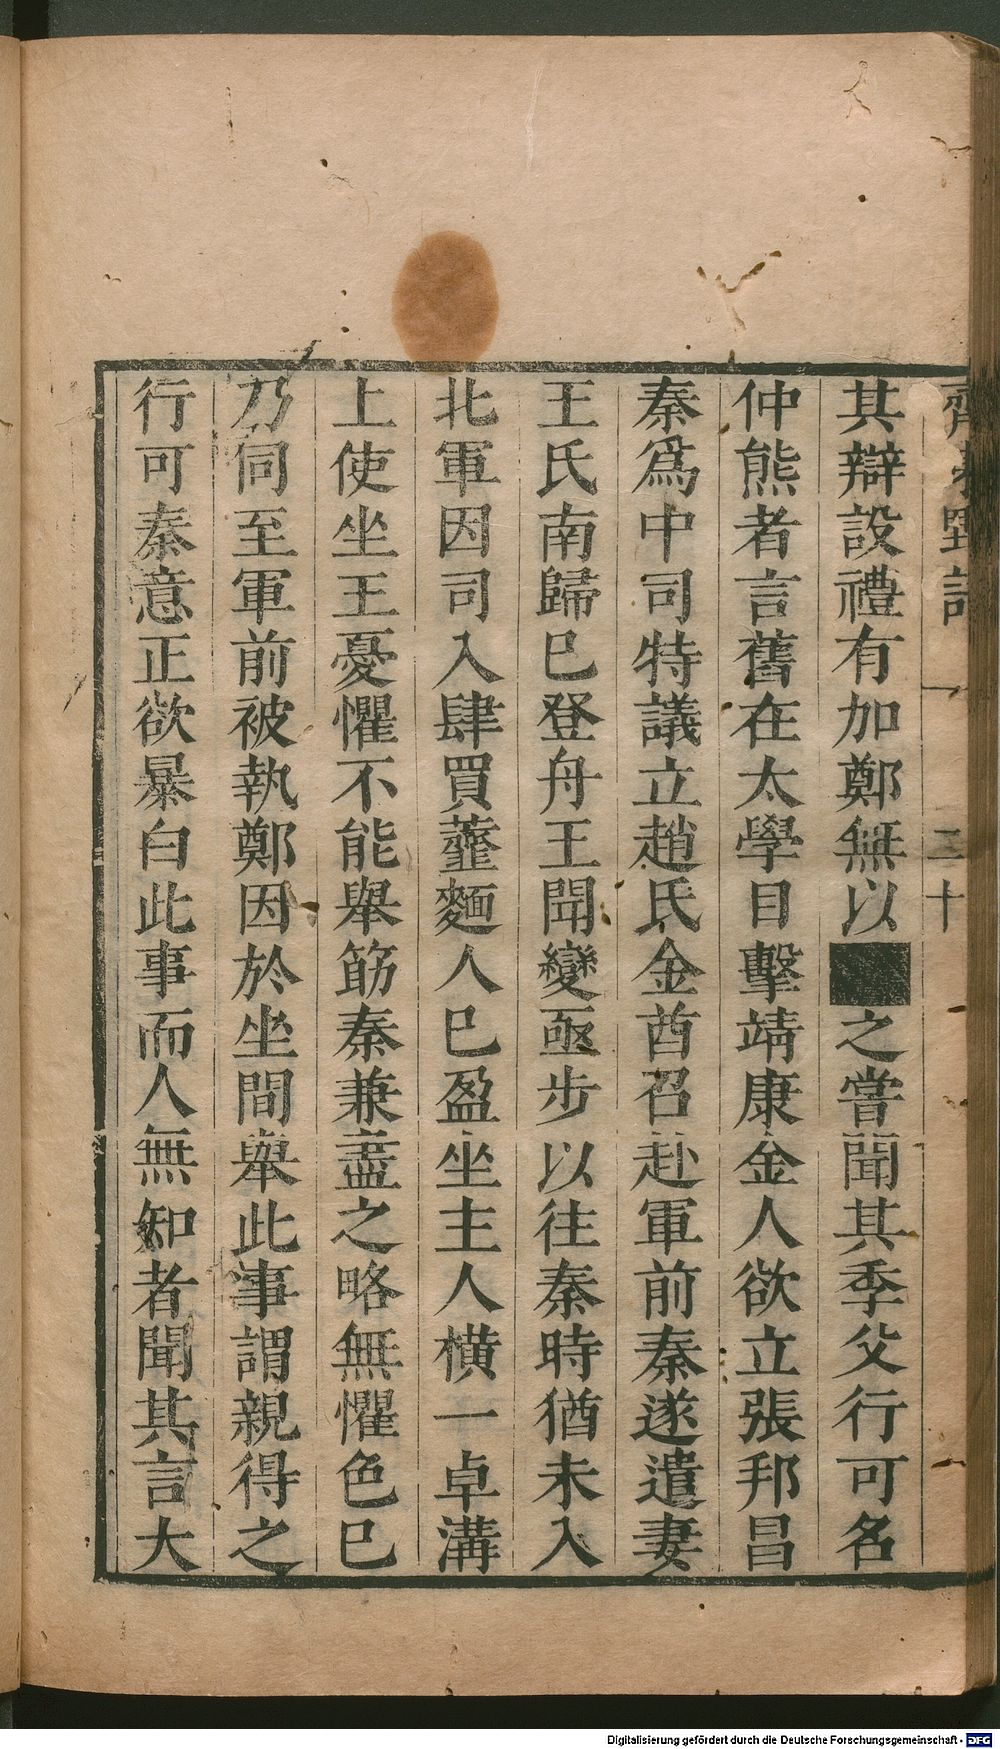 其辯設禮有加鄭無以■之嘗聞其季父行可名
仲熊者言舊在太學目擊靖康金人欲立張邦昌
秦爲中司特議立趙氏金酋召赴軍前秦遂遣妻
王氏南歸巳登舟王聞變亟步以往秦時猶未入
北軍因司入肆買虀麵人巳盈坐主人橫一卓溝
上使坐王憂懼不能舉筯秦兼盡之略無懼色巳
乃伺至軍前被執鄭因於坐間舉此事謂親得之
行可秦意正欲暴白此事而人無知者聞其言大
齊東野語
一
二十
Digitalisierung gefördert durch die Deutsche Forschungsgemeinschaft - DFG